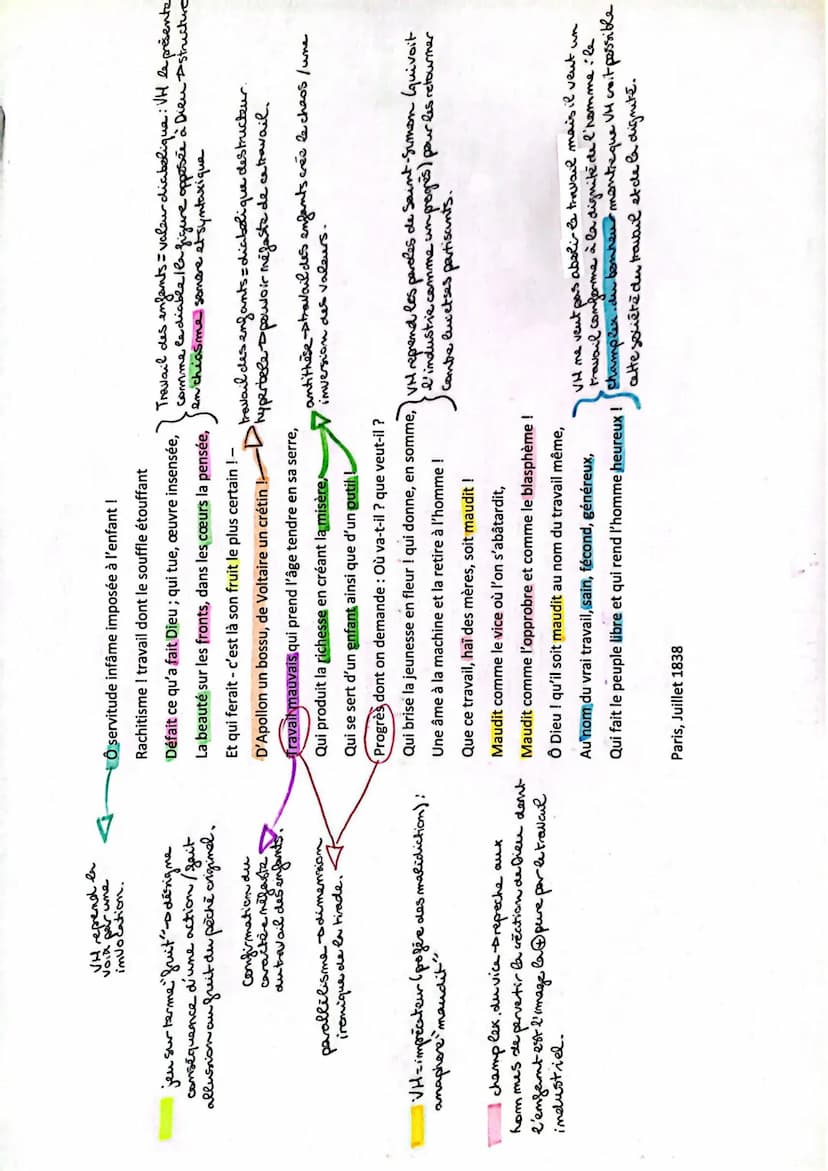 VH reprend la
voix par une
invocation.
Ô servitude infâme imposée à l'enfant !
Rachitisme ! travail dont le souffle étouffant
Défait ce qu'a fait Dieu ; qui tue, œuvre insensée,
La beauté sur les fronts, dans les cœurs la pensée,
Et qui ferait - c'est là son fruit le plus certain ! –
D'Apollon un bossu, de Voltaire un crétin !
Travail mauvais qui prend l'âge tendre en sa serre,
Qui produit la richesse en créant la misère,
Qui se sert d'un enfant ainsi que d'un outil !
Progrès dont on demande : Où va-t-il ? que veut-il ?
Qui brise la jeunesse en fleur ! qui donne, en somme,
Une âme à la machine et la retire à l'homme !
Que ce travail, haï des mères, soit maudit !
Maudit comme le vice où l'on s'abâtardit,
Maudit comme l'opprobre et comme le blasphème !
Ô Dieu ! qu'il soit maudit au nom du travail même,
Au nom du vrai travail, sain, fécond, généreux,
Qui fait le peuple libre et qui rend l'homme heureux !
Paris, Juillet 1838
jeu sur terme "fruit" → désigne
conséquence d'une action / fait
allusion au fruit du péché originel.
Confirmation du
caractère néfaste
du travail des enfants.
parallélisme → dimension
ironique de la tirade.
VH = imprécateur (profère des malédiction) :
anaphore "maudit"
champ lex. du vice → reproche aux
hommes de pervertir la création de Dieu dont
l'enfant est l'image la ⊕ pure par le travail
industriel.
Travail des enfants = valeur diabolique : VH le présente
comme le diable / la figure opposée à Dieu → structure
en chiasme sonore et syntaxique
travail des enfants = diabolique destructeur.
hyperbole → pouvoir néfaste de ce travail.
antithèse → travail des enfants crée le chaos / une
inversion des valeurs.
VH reprend les paroles de Saint-Simon (qui voit
l'industrie comme un progrès) pour les retourner
contre lui et ses partisants.
VH ne veut pas abolir le travail mais il veut un
travail conforme à la dignité de l'homme : le
champ lex. du bonheur montre que VH croit possible
cette société du travail et de la dignité.